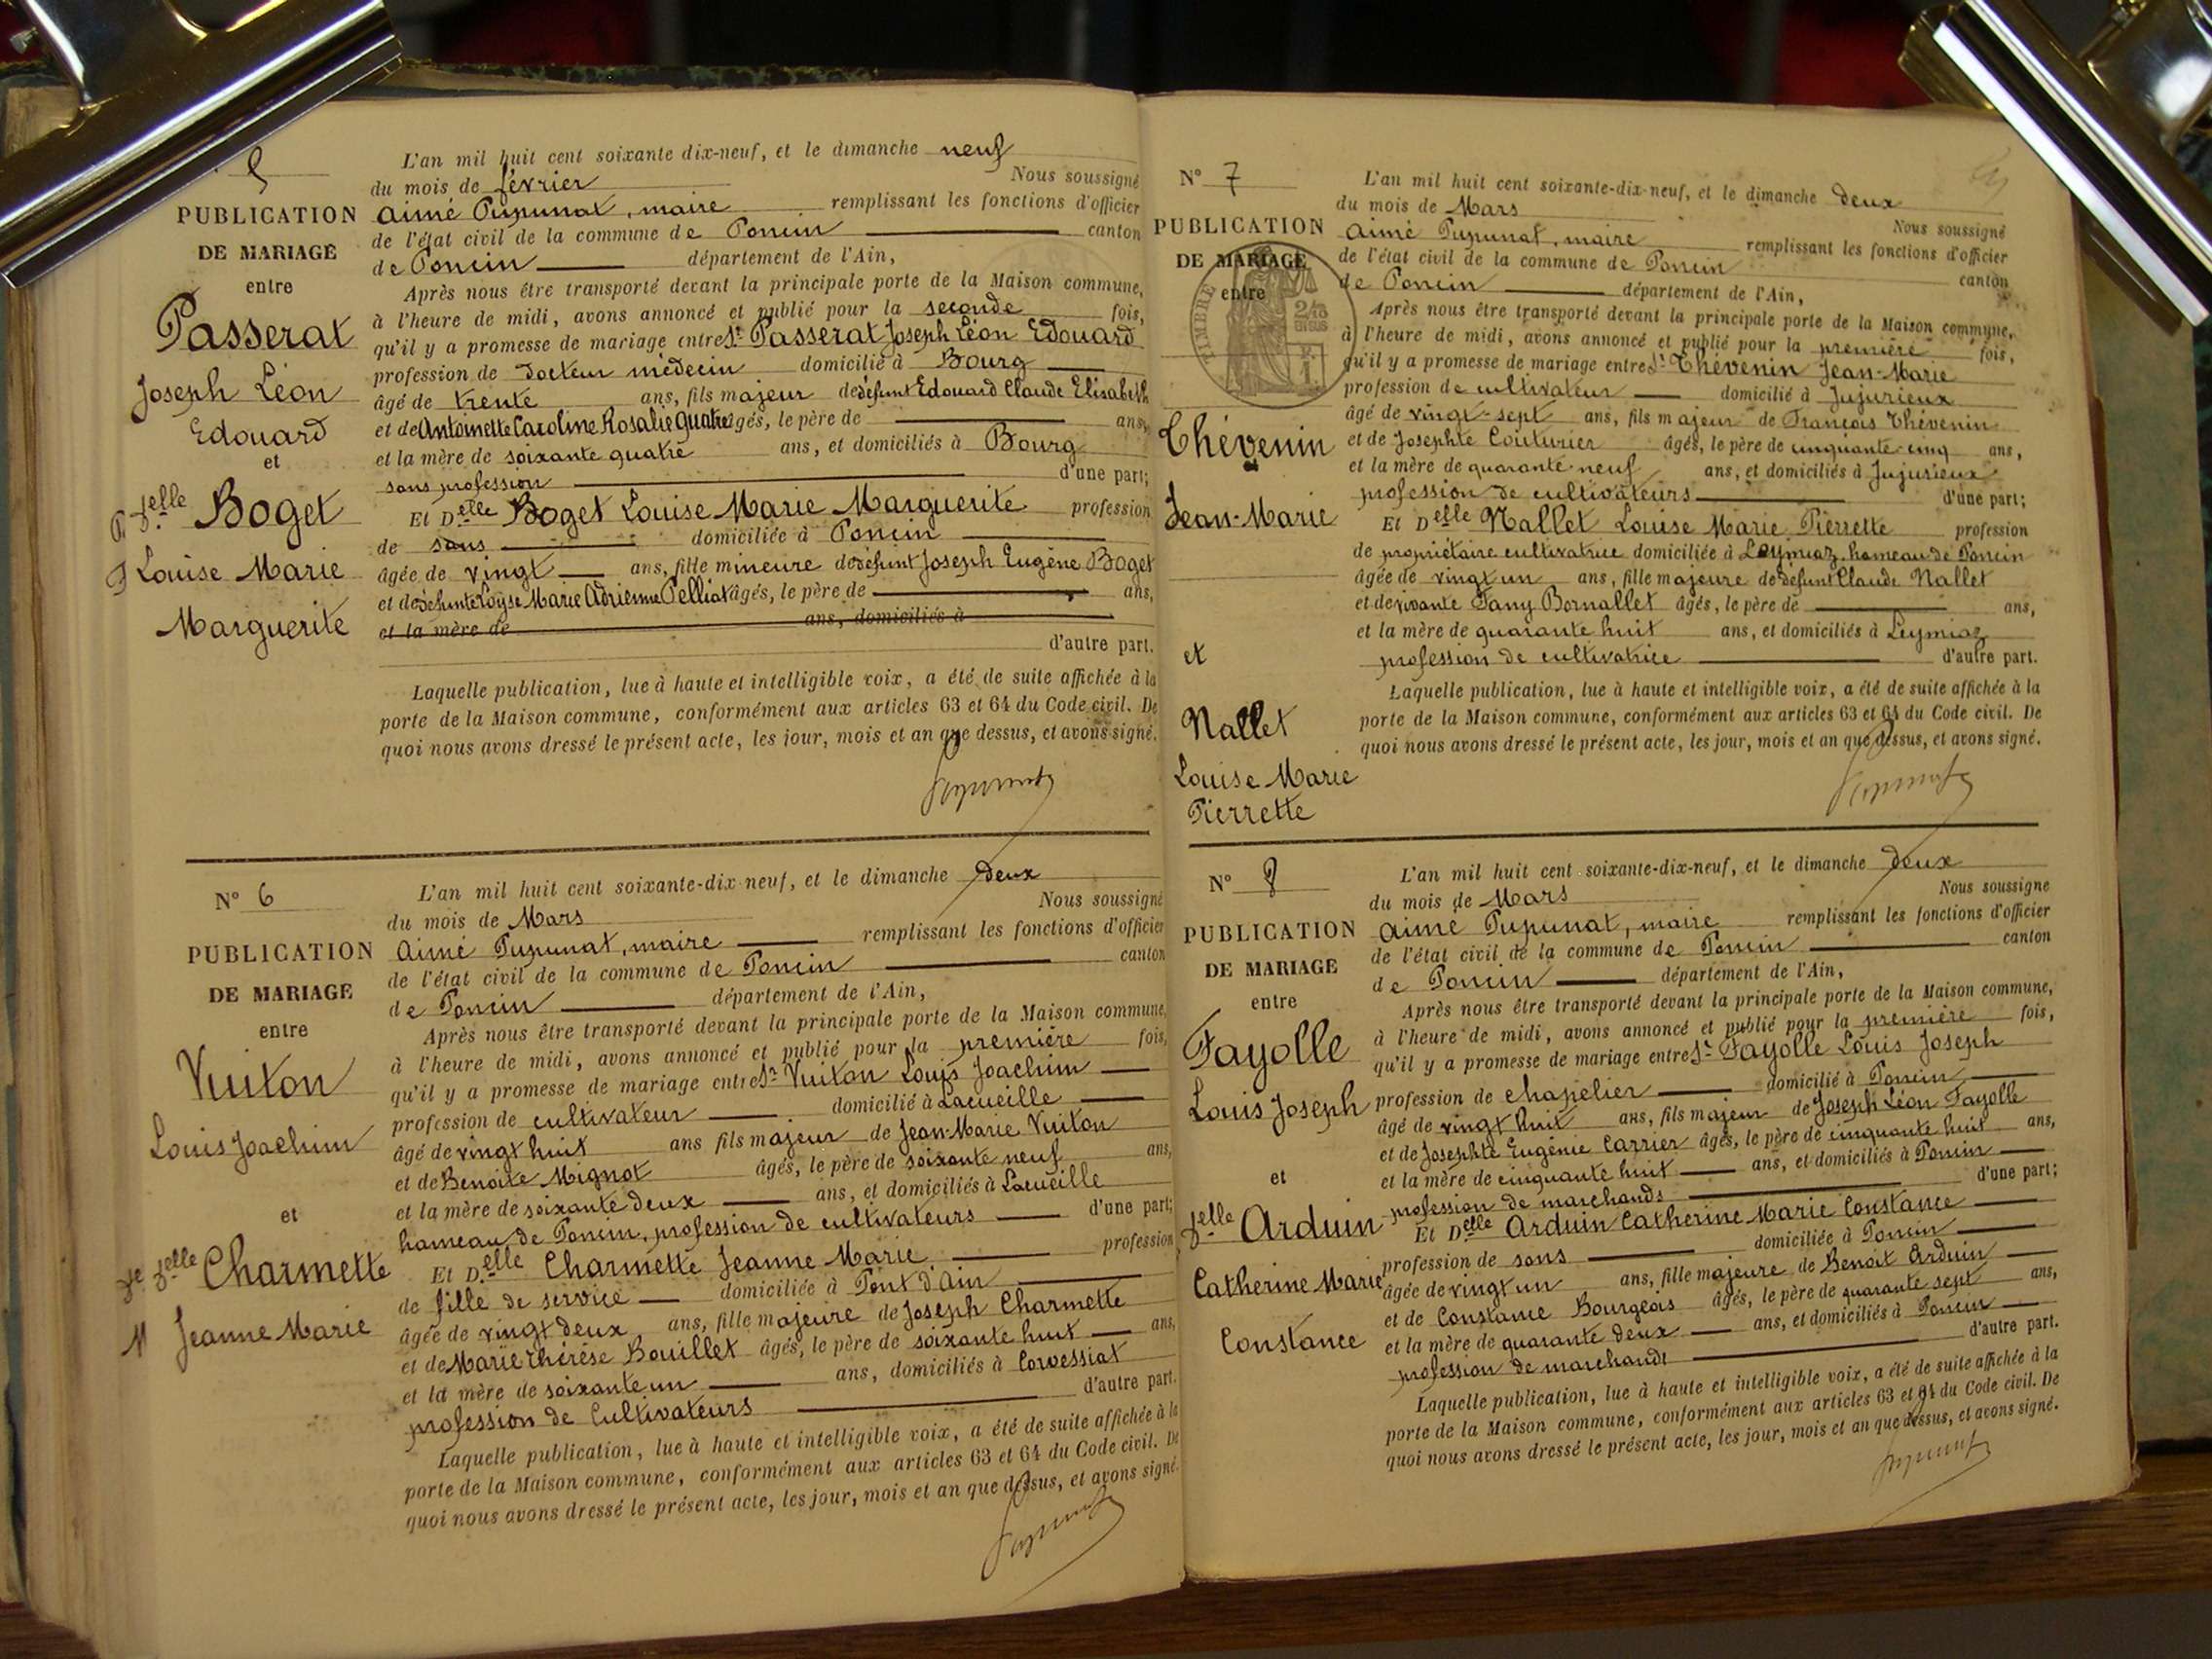 5
PUBLICATION
DE MARIAGE
entre
Passerat
Joseph Léon
Edouard
et
Delle Boget
Louise Marie
Marguerite
L'an mil huit cent soixante dix-neuf, et le dimanche neuf
du mois de février Nous soussigné
Aimé Pupunat, maire remplissant les fonctions d'officier
de l'état civil de la commune de Poncin canton
de Poncin département de l'Ain,
Après nous être transporté devant la principale porte de la Maison commune,
à l'heure de midi, avons annoncé et publié pour la seconde fois,
qu'il y a promesse de mariage entre Sr Passerat Joseph Léon Edouard
profession de Docteur médecin domicilié à Bourg
âgé de trente ans, fils majeur de défunt Edouard Claude Elisabeth
et de Antoinette Caroline Rosalie Quatre âgés, le père de ans,
et la mère de soixante quatre ans, et domiciliés à Bourg
sans profession d'une part;
Et Delle Boget Louise Marie Marguerite profession
de sans domiciliée à Poncin
âgée de vingt ans, fille mineure de défunt Joseph Eugène Boget
et de défunte Loyse Marie Adrienne Pelliat âgés, le père de ans,
et la mère de ans, domiciliés à
d'autre part.
Laquelle publication, lue à haute et intelligible voix, a été de suite affichée à la
porte de la Maison commune, conformément aux articles 63 et 64 du Code civil. De
quoi nous avons dressé le présent acte, les jour, mois et an que dessus, et avons signé.
Pupunat
N° 6
PUBLICATION
DE MARIAGE
entre
Vuiton
Louis Joachim
et
Delle Charmette
Jeanne Marie
L'an mil huit cent soixante-dix-neuf, et le dimanche deux
du mois de Mars Nous soussigné
Aimé Pupunat, maire remplissant les fonctions d'officier
de l'état civil de la commune de Poncin canton
de Poncin département de l'Ain,
Après nous être transporté devant la principale porte de la Maison commune,
à l'heure de midi, avons annoncé et publié pour la première fois,
qu'il y a promesse de mariage entre Sr Vuiton Louis Joachim
profession de cultivateur domicilié à Lacueille
âgé de vingt huit ans fils majeur de Jean-Marie Vuiton
et de Benoite Mignot âgés, le père de soixante neuf ans,
et la mère de soixante deux ans, et domiciliés à Lacueille
hameau de Poncin, profession de cultivateurs d'une part;
Et Delle Charmette Jeanne Marie profession
de fille de service domiciliée à Pont d'Ain
âgée de vingt deux ans, fille majeure de Joseph Charmette
et de Marie Thérèse Bouillet âgés, le père de soixante huit ans,
et la mère de soixante un ans, domiciliés à Corvessiat
profession de Cultivateurs d'autre part.
Laquelle publication, lue à haute et intelligible voix, a été de suite affichée à la
porte de la Maison commune, conformément aux articles 63 et 64 du Code civil. De
quoi nous avons dressé le présent acte, les jour, mois et an que dessus, et avons signé.
Pupunat
N° 7
PUBLICATION
DE MARIAGE
entre
TIMBRE
Thévenin
Jean-Marie
et
Nallet
Louise Marie
Pierrette
L'an mil huit cent soixante-dix-neuf, et le dimanche deux
du mois de Mars Nous soussigné
Aimé Pupunat, maire remplissant les fonctions d'officier
de l'état civil de la commune de Poncin canton
de Poncin département de l'Ain,
Après nous être transporté devant la principale porte de la Maison commune,
à l'heure de midi, avons annoncé et publié pour la première fois,
qu'il y a promesse de mariage entre Sr Thévenin Jean-Marie
profession de cultivateur domicilié à Jujurieux
âgé de vingt-sept ans, fils majeur de François Thévenin
et de Josephte Couturier âgés, le père de cinquante-cinq ans,
et la mère de quarante neuf ans, et domiciliés à Jujurieux
profession de cultivateurs d'une part;
Et Delle Nallet Louise Marie Pierrette profession
de propriétaire cultivatrice domiciliée à Leymiaz, hameau de Poncin
âgée de vingt un ans, fille majeure de défunt Claude Nallet
et de vivante Fany Bornallet âgés, le père de ans,
et la mère de quarante huit ans, et domiciliés à Leymiaz
profession de cultivatrice d'autre part.
Laquelle publication, lue à haute et intelligible voix, a été de suite affichée à la
porte de la Maison commune, conformément aux articles 63 et 64 du Code civil. De
quoi nous avons dressé le présent acte, les jour, mois et an que dessus, et avons signé.
Pupunat
N° 8
PUBLICATION
DE MARIAGE
entre
Fayolle
Louis Joseph
et
Delle Arduin
Catherine Marie
Constance
L'an mil huit cent soixante-dix-neuf, et le dimanche deux
du mois de Mars Nous soussigné
Aimé Pupunat, maire remplissant les fonctions d'officier
de l'état civil de la commune de Poncin canton
de Poncin département de l'Ain,
Après nous être transporté devant la principale porte de la Maison commune,
à l'heure de midi, avons annoncé et publié pour la première fois,
qu'il y a promesse de mariage entre Sr Fayolle Louis Joseph
profession de chapelier domicilié à Poncin
âgé de vingt huit ans, fils majeur de Joseph Léon Fayolle
et de Josephte Eugénie Carrier âgés, le père de cinquante huit ans,
et la mère de cinquante huit ans, et domiciliés à Poncin
profession de marchands d'une part;
Et Delle Arduin Catherine Marie Constance
profession de sans domiciliée à Poncin
âgée de vingt un ans, fille majeure de Benoit Arduin
et de Constance Bourgeois âgés, le père de quarante sept ans,
et la mère de quarante deux ans, et domiciliés à Poncin
profession de marchands d'autre part.
Laquelle publication, lue à haute et intelligible voix, a été de suite affichée à la
porte de la Maison commune, conformément aux articles 63 et 64 du Code civil. De
quoi nous avons dressé le présent acte, les jour, mois et an que dessus, et avons signé.
Pupunat